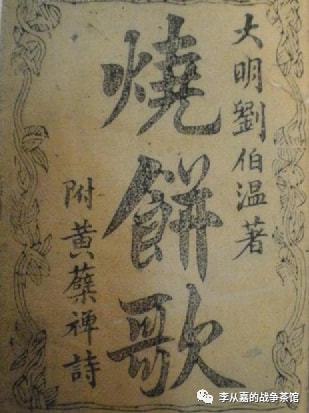 大明劉伯温著
燒餅歌
附黃蘖禪詩
李从嘉的战争茶馆